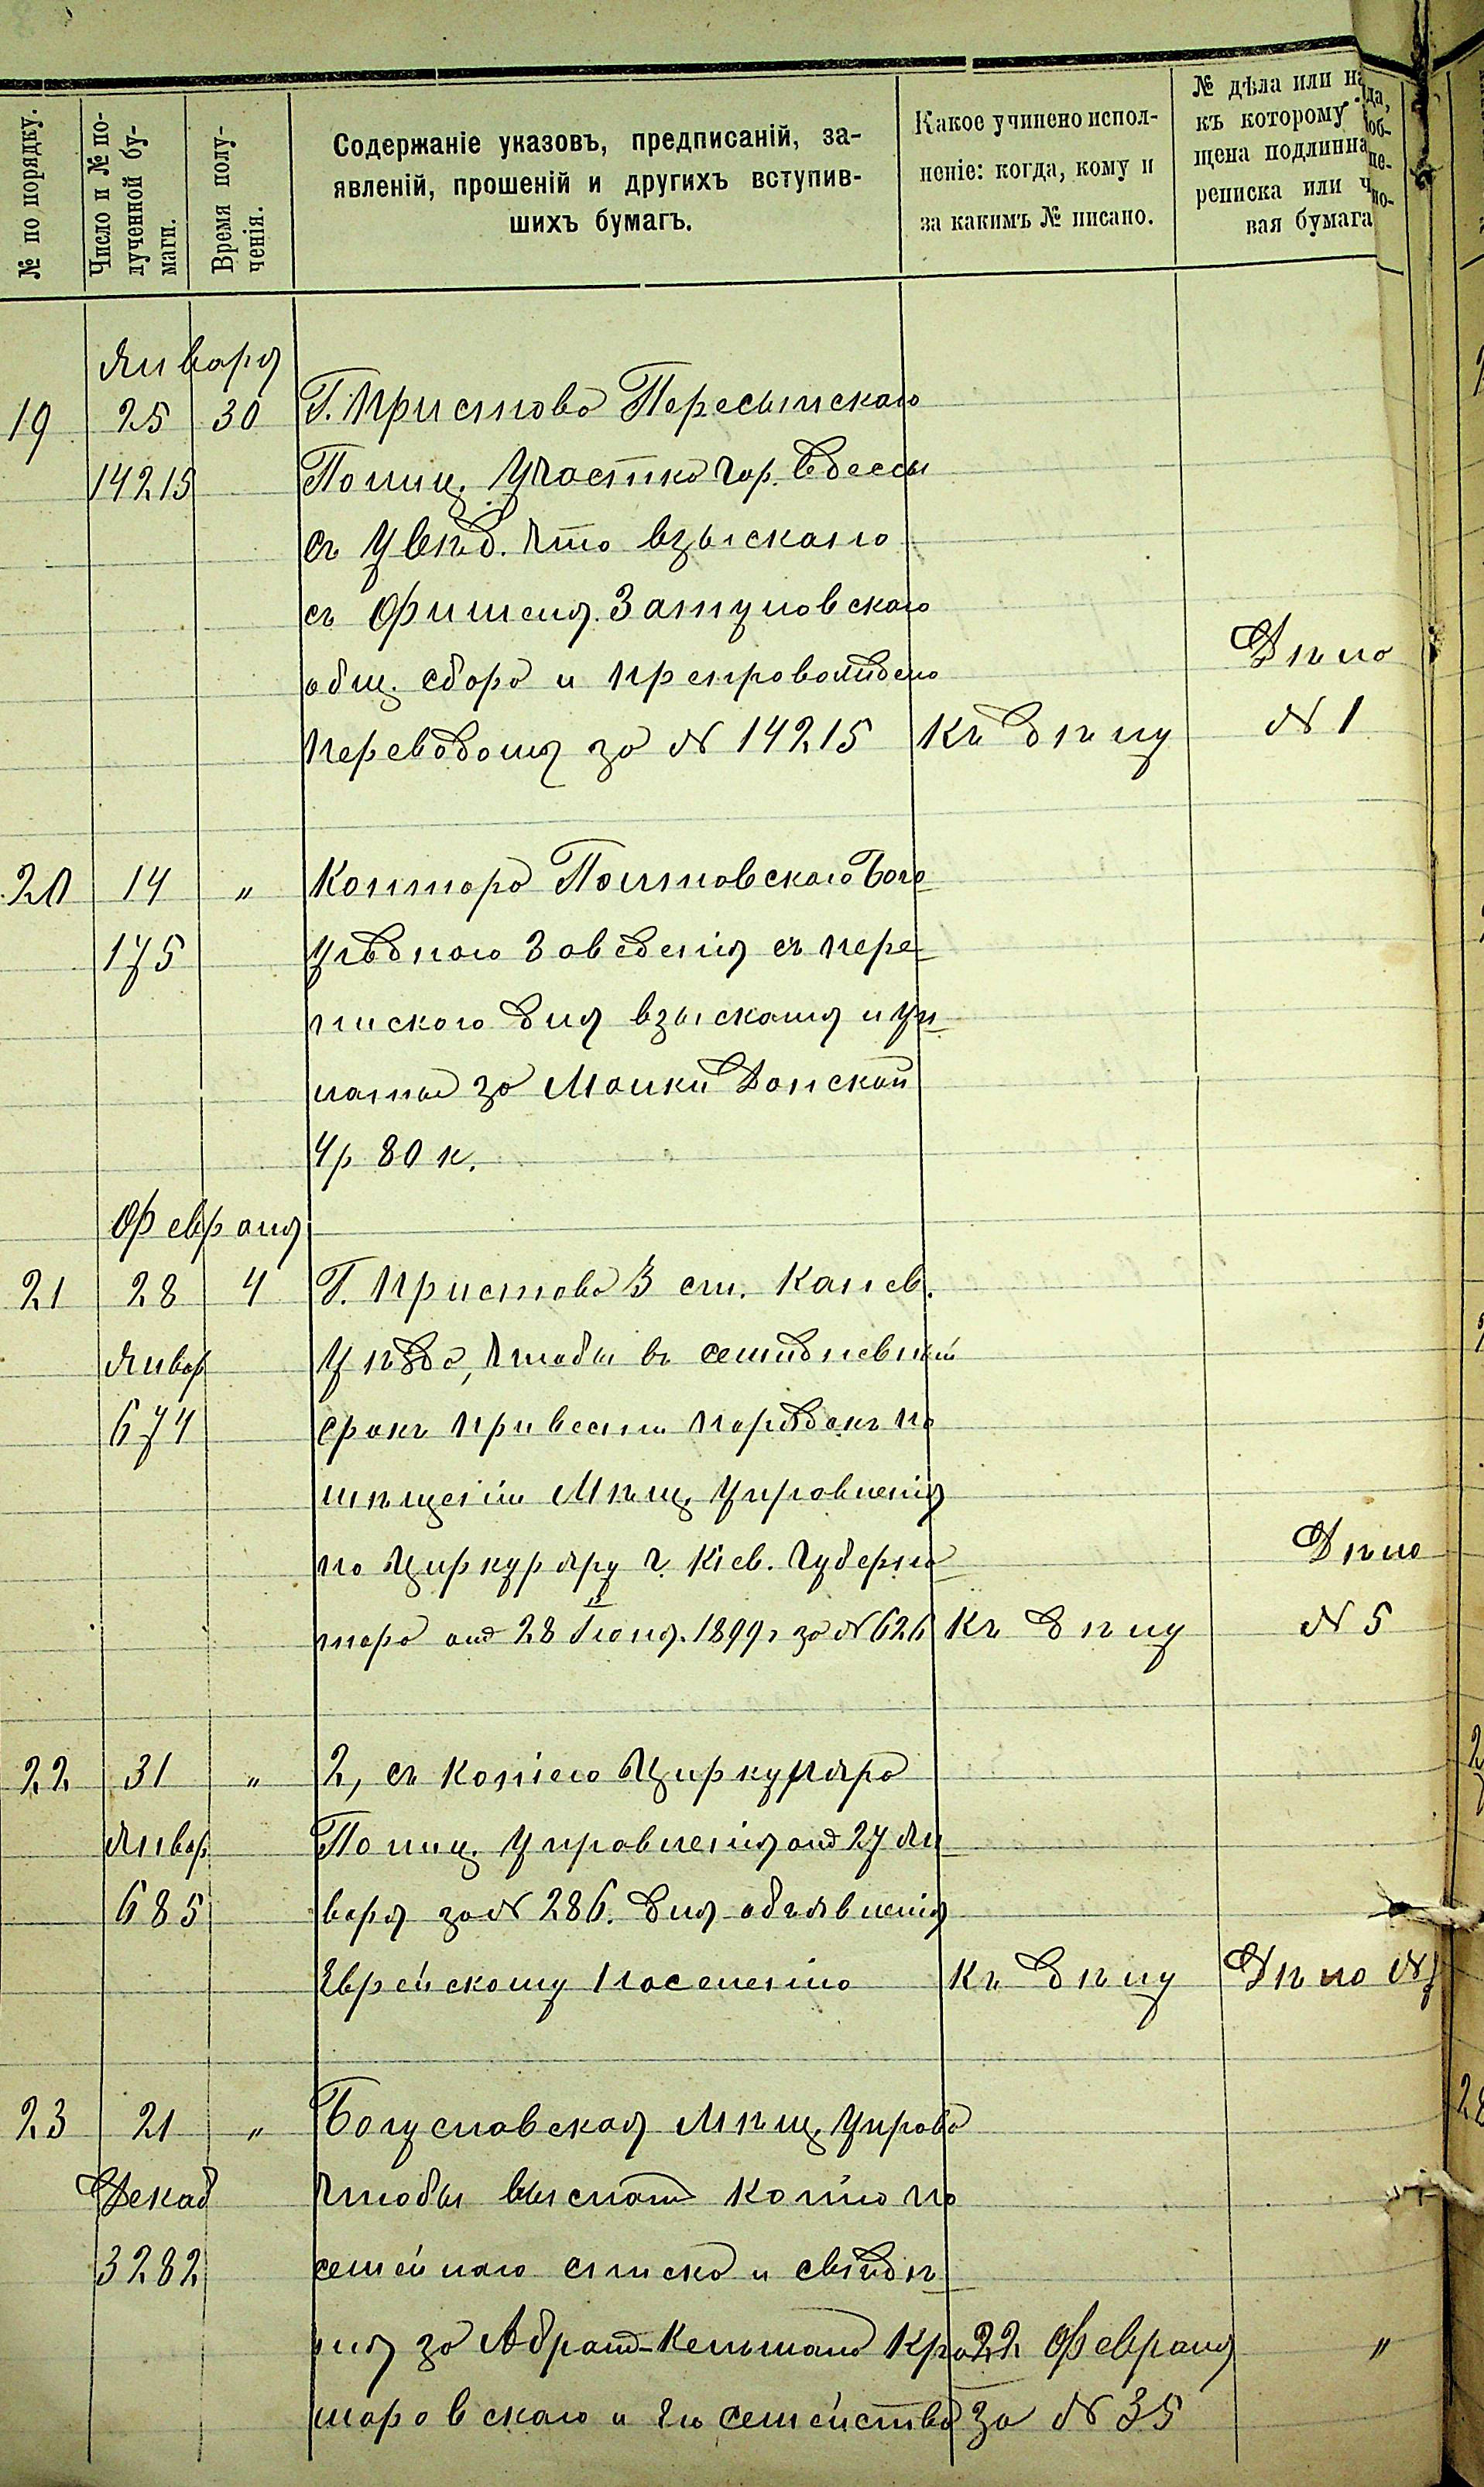 № по порядку.
Число и № по-
лученной бу-
маги.
Время полу-
ченія.
Содержаніе указовъ, предписаній, за-
явленій, прошеній и другихъ вступив-
шихъ бумагъ.
Какое учинено испол-
неніе: когда, кому и
за какимъ № писано.
№ дѣла или на
къ которому
щена подлинна
реписка или ч
вая бумага
Января
19 25 30 Г. Пристава Пересыпскаго
14215 Полиц. Участка гор. Одессы
съ Увѣд. что взыскано
съ Фишеля Затуловскаго
общ. сбора и препровождено Дѣло
переводомъ за № 14215 Къ дѣлу № 1
20 14 „ Контора Полтовскаго Бого
175 угоднаго Заведенія съ пере
пискою для взысканія и уп
латы за Малки Донской
4 р 80 к.
Февраля
21 28 4 Г. Пристава 3 ст. Канев.
Январ Уѣзда, чтобы въ семидневный
674 срокъ привести порядокъ по
мѣщеніи Мѣщ. Управленія
по Циркуляру г. Кіев. Губерна Дѣло
тора отъ 28 Іюня 1899 г за № 626 Къ дѣлу № 5
22 31 „ 2, съ копіею Циркуляра
Январ Полиц. Управленія отъ 27 Ян
685 варя за № 286. для объявленія
Еврейскому Населенію Къ дѣлу Дѣло №
23 21 „ Богуславская Мѣщ. Управа
Декаб чтобы выслать копію по
3282 семейнаго списка и свѣдѣ
нія за Абрам-Кельмана 22 Февраля „
маровскаго и его семейства за № 35